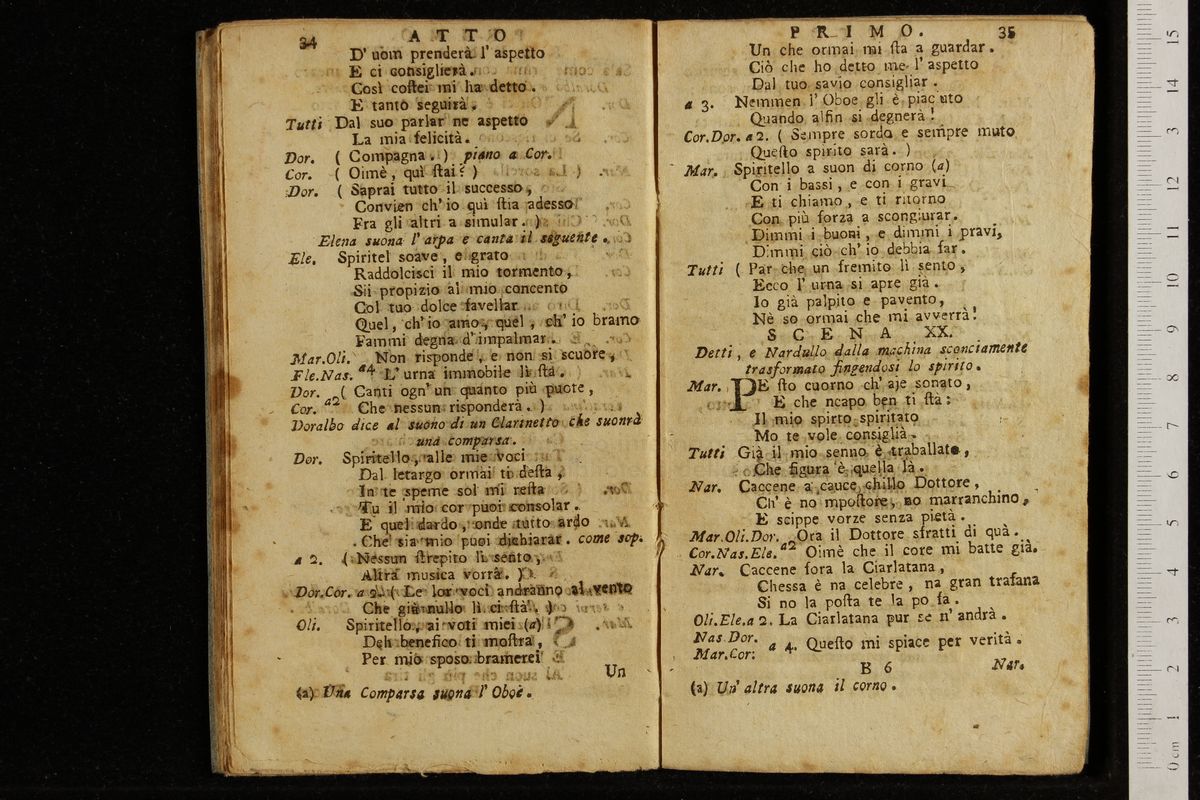 34 ATTO
D' uom prenderà l' aspetto
E ci consiglierà.
Così costei mi ha detto.
E tanto seguirà.
Tutti Dal suo parlar ne aspetto
La mia felicità.
Dor. ( Compagna. ) piano a Cor.
Cor. ( Oimè, quì stai? )
Dor. ( Saprai tutto il successo,
Convien ch' io quì stia adesso
Fra gli altri a simular. )
Elena suona l' arpa e canta il seguente.
Ele. Spiritel soave, e grato
Raddolcisci il mio tormento,
Sii propizio al mio concento
Col tuo dolce favellar
Quel, ch' io amo, quel, ch' io bramo
Fammi degna d' impalmar.
Mar.Oli. Non risponde, e non si scuore,
Ele.Nas. a4 L' urna immobile lì sta.
Dor. ( Canti ogn' un quanto più puote,
Cor. a2 Che nessun risponderà. )
Doralbo dice al suono di un Clarinetto che suonrà
una comparsa.
Dor. Spiritello, alle mie voci
Dal letargo ormai ti desta,
In te speme sol mi resta
Tu il mio cor puoi consolar.
E quel dardo, onde tutto ardo
Che sia mio puoi dichiarar. come sop.
a 2. ( Nessun strepito lì sento,
Altra musica vorrà. )
Dor.Cor. a 2. ( Le lor voci andranno al vento
Che già nullo lì ci stà. )
Oli. Spiritello, ai voti miei (a)
Deh benefico ti mostra,
Per mio sposo bramerei
Un
(a) Una Comparsa suona l' Oboè.
PRIMO. 35
Un che ormai mi sta a guardar.
Ciò che ho detto me l' aspetto
Dal tuo savio consigliar.
a 3. Nemmen l' Oboe gli è piaciuto
Quando alfin si degnerà!
Cor.Dor. a 2. ( Sempre sordo e sempre muto
Questo spirito sarà. )
Mar. Spiritello a suon di corno (a)
Con i bassi, e con i gravi
E ti chiamo, e ti ritorno
Con più forza a scongiurar.
Dimmi i buoni, e dimmi i pravi,
Dimmi ciò ch' io debbia far.
Tutti ( Par che un fremito lì sento,
Ecco l' urna si apre già.
Io già palpito e pavento,
Nè so ormai che mi avverrà!
SCENA XX.
Detti, e Nardullo dalla machina sconciamente
trasformato fingendosi lo spirito.
Mar. PE sto cuorno ch' aje sonato,
E che ncapo ben ti sta:
Il mio spirto spiritato
Mo te vole consiglià.
Tutti Già il mio senno è traballato,
Che figura è quella là.
Nar. Caccene a cauce chillo Dottore,
Ch' è no mpostore, no marranchino,
E scippe vorze senza pietà.
Mar.Oli.Dor. Ora il Dottore sfratti di quà.
Cor.Nas.Ele. a2 Oimè che il core mi batte già.
Nar. Caccene fora la Ciarlatana,
Chessa è na celebre, na gran trafana
Si no la posta te la po fa.
Oli.Ele.a 2. La Ciarlatana pur se n' andrà.
Nas Dor.
Mar.Cor. a 4. Questo mi spiace per verità.
B 6 Nar.
(a) Un' altra suona il corno.